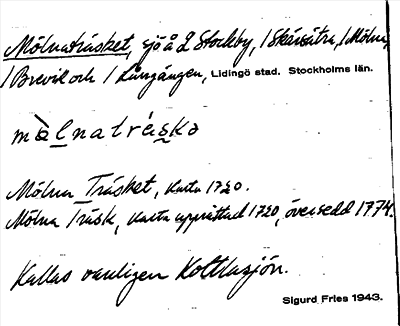 Mölnaträsket, sjö å 2 Stockby, 1 Skärsätra, 1 Mölna,
1 Brevik och 1 Långängen, Lidingö stad. Stockholms län.
mὰlnatrǽskə
Mölna Träsket, Karta 1720.
Mölna Träsk, Karta upprättad 1720, översedd 1774.
Kallas vanligen Kottlasjön.
Sigurd Fries 1943.